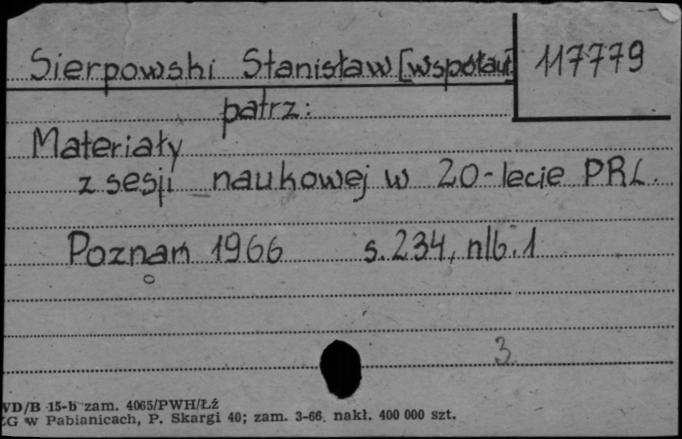 Sierpowski Stanisław [współaut] 117779
patrz:
Materiały
z sesji naukowej w 20-lecie PRL.
Poznań 1966 s. 234, nlb. 1
3
VD/B 15-b zam. 4065/PWH/Łż
ZG w Pabianicach, P. Skargi 40; zam. 3-66, nakł. 400 000 szt.